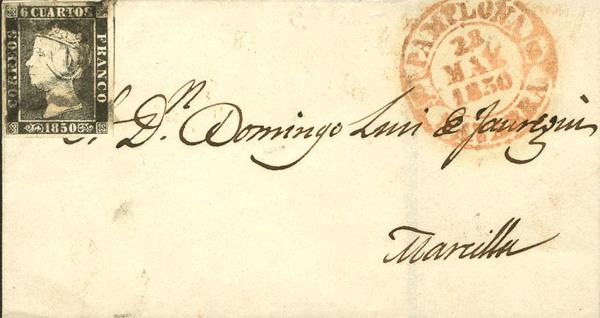 6 CUARTOS
CORREOS
FRANCO
1850
PAMPLONA
28
MAY
1850
Sr. Dn. Domingo Luis de Jauregui
Marcilla